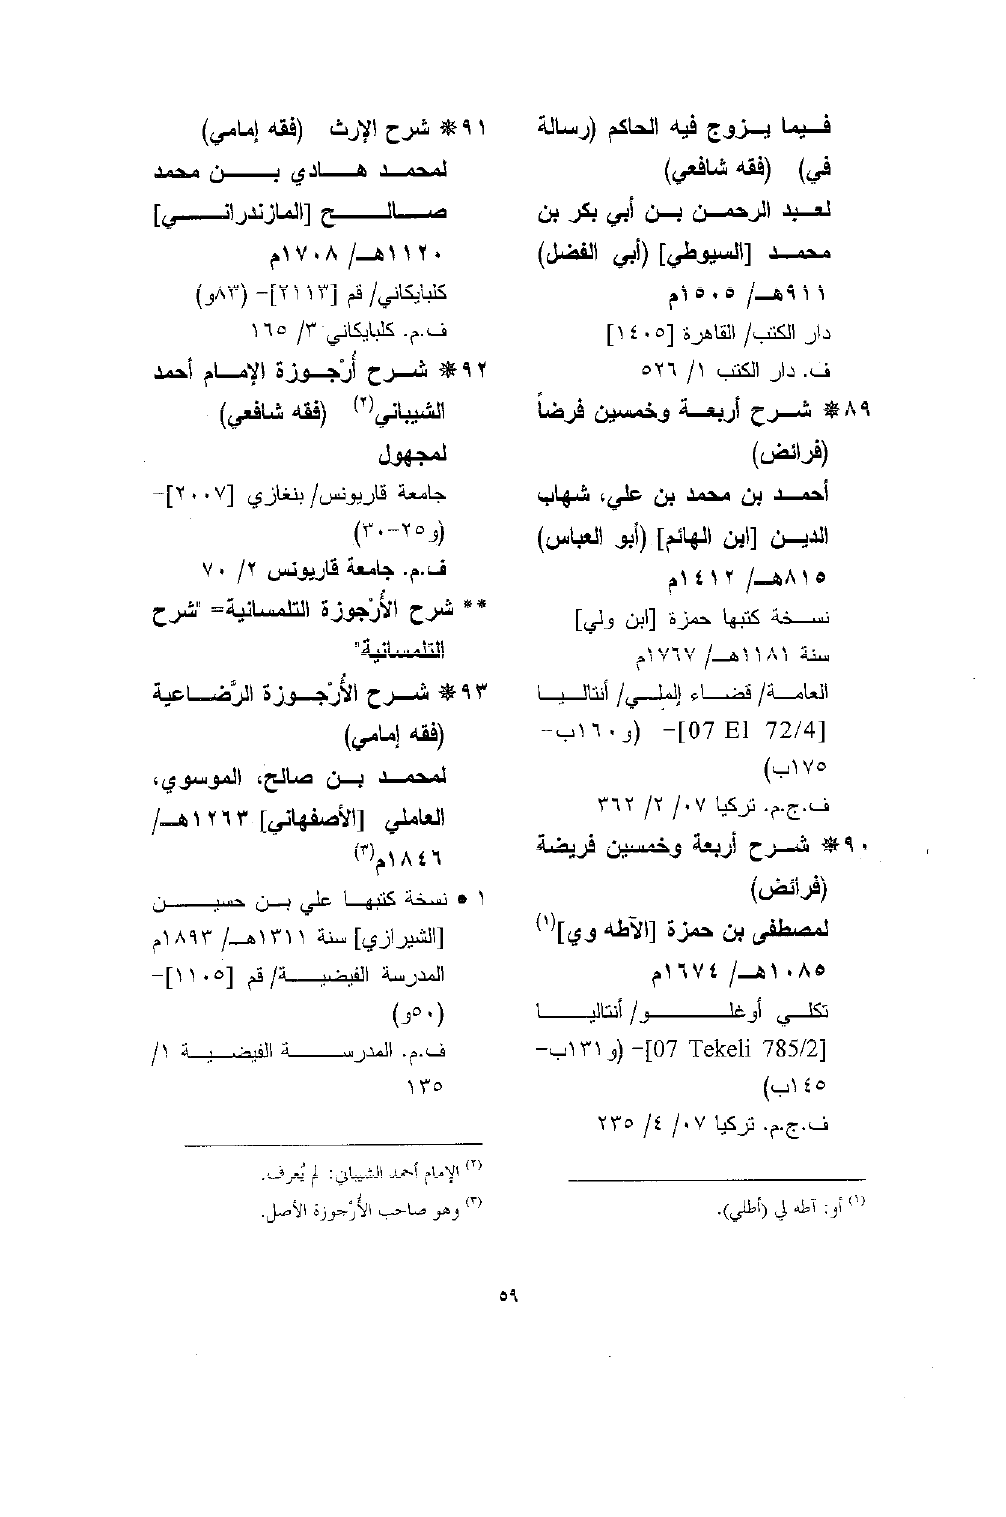 فيما يزوج فيه الحاكم (رسالة
في) (فقه شافعي)
لعبد الرحمن بن أبي بكر بن
محمد [السيوطي] (أبي الفضل)
٩١١هـ/ ١٥٠٥م
دار الكتب/ القاهرة [١٤٠٥]
ف. دار الكتب ١/ ٥٢٦
٨٩* شرح أربعة وخمسين فرضاً
(فرائض)
أحمد بن محمد بن علي، شهاب
الدين [ابن الهائم] (أبو العباس)
٨١٥هـ/ ١٤١٢م
نسخة كتبها حمزة [ابن ولي]
سنة ١١٨١هـ/ ١٧٦٧م
العامة/ قضاء إلملي/ أنتاليا
[07 El 72/4]- (و١٦٠ب-
١٧٥ب)
ف.ج.م. تركيا ٠٧/ ٢/ ٣٦٢
٩٠* شرح أربعة وخمسين فريضة
(فرائض)
لمصطفى بن حمزة [الآطه وي](١)
١٠٨٥هـ/ ١٦٧٤م
تكلي أوغلو/ أنتاليا
[07 Tekeli 785/2]- (و١٣١ب-
١٤٥ب)
ف.ج.م. تركيا ٠٧/ ٤/ ٢٣٥
(١) أو: آطه لي (أطلي).
٩١* شرح الإرث (فقه إمامي)
لمحمد هادي بن محمد
صالح [المازندراني]
١١٢٠هـ/ ١٧٠٨م
كلبايكاني/ قم [٢١١٣]- (٨٣و)
ف.م. كلبايكاني ٣/ ١٦٥
٩٢* شرح أُرْجوزة الإمام أحمد
الشيباني(٢) (فقه شافعي)
لمجهول
جامعة قاريونس/ بنغازي [٢٠٠٧]-
(و٢٥-٣٠)
ف.م. جامعة قاريونس ٢/ ٧٠
** شرح الأُرْجوزة التلمسانية= "شرح
التلمسانية"
٩٣* شرح الأُرْجوزة الرَّضاعية
(فقه إمامي)
لمحمد بن صالح، الموسوي،
العاملي [الأصفهاني] ١٢٦٣هـ/
١٨٤٦م(٣)
١ • نسخة كتبها علي بن حسين
[الشيرازي] سنة ١٣١١هـ/ ١٨٩٣م
المدرسة الفيضية/ قم [١١٠٥]-
(٥٠و)
ف.م. المدرسة الفيضية ١/
١٣٥
(٢) الإمام أحمد الشيباني: لم يُعرف.
(٣) وهو صاحب الأُرْجوزة الأصل.
٥٩